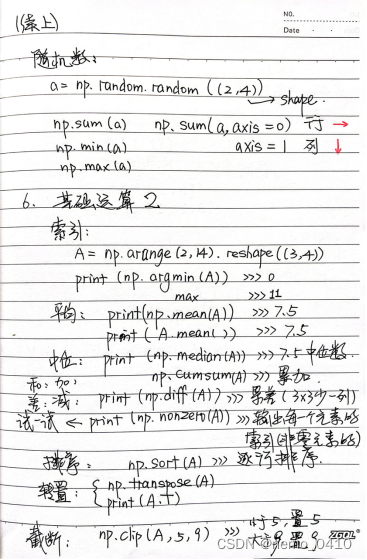 (续上)
NO.
Date
随机数:
a = np.random.random((2,4))
→ shape.
np.sum(a) np.sum(a,axis=0) 行 →
np.min(a) axis=1 列 ↓
np.max(a)
6. 基础运算2
索引:
A = np.arange(2,14).reshape((3,4))
print(np.argmin(A)) >>> 0
max >>> 11
平均: print(np.mean(A)) >>> 7.5
print(A.mean()) >>> 7.5
中位: print(np.median(A)) >>> 7.5 中位数.
和:加: np.cumsum(A) >>> 累加.
差:减: print(np.diff(A)) >>> 累差(3x3少一列)
试一试 ← print(np.nonzero(A)) >>> 输出每一个元素的
索引(非零元素的)
排序: np.sort(A) >>> 逐行排序.
转置: { np.transpose(A)
print(A.T)
截断: np.clip(A,5,9) >>> 小于5,置5
大于9置9
CSDN @demo_0410